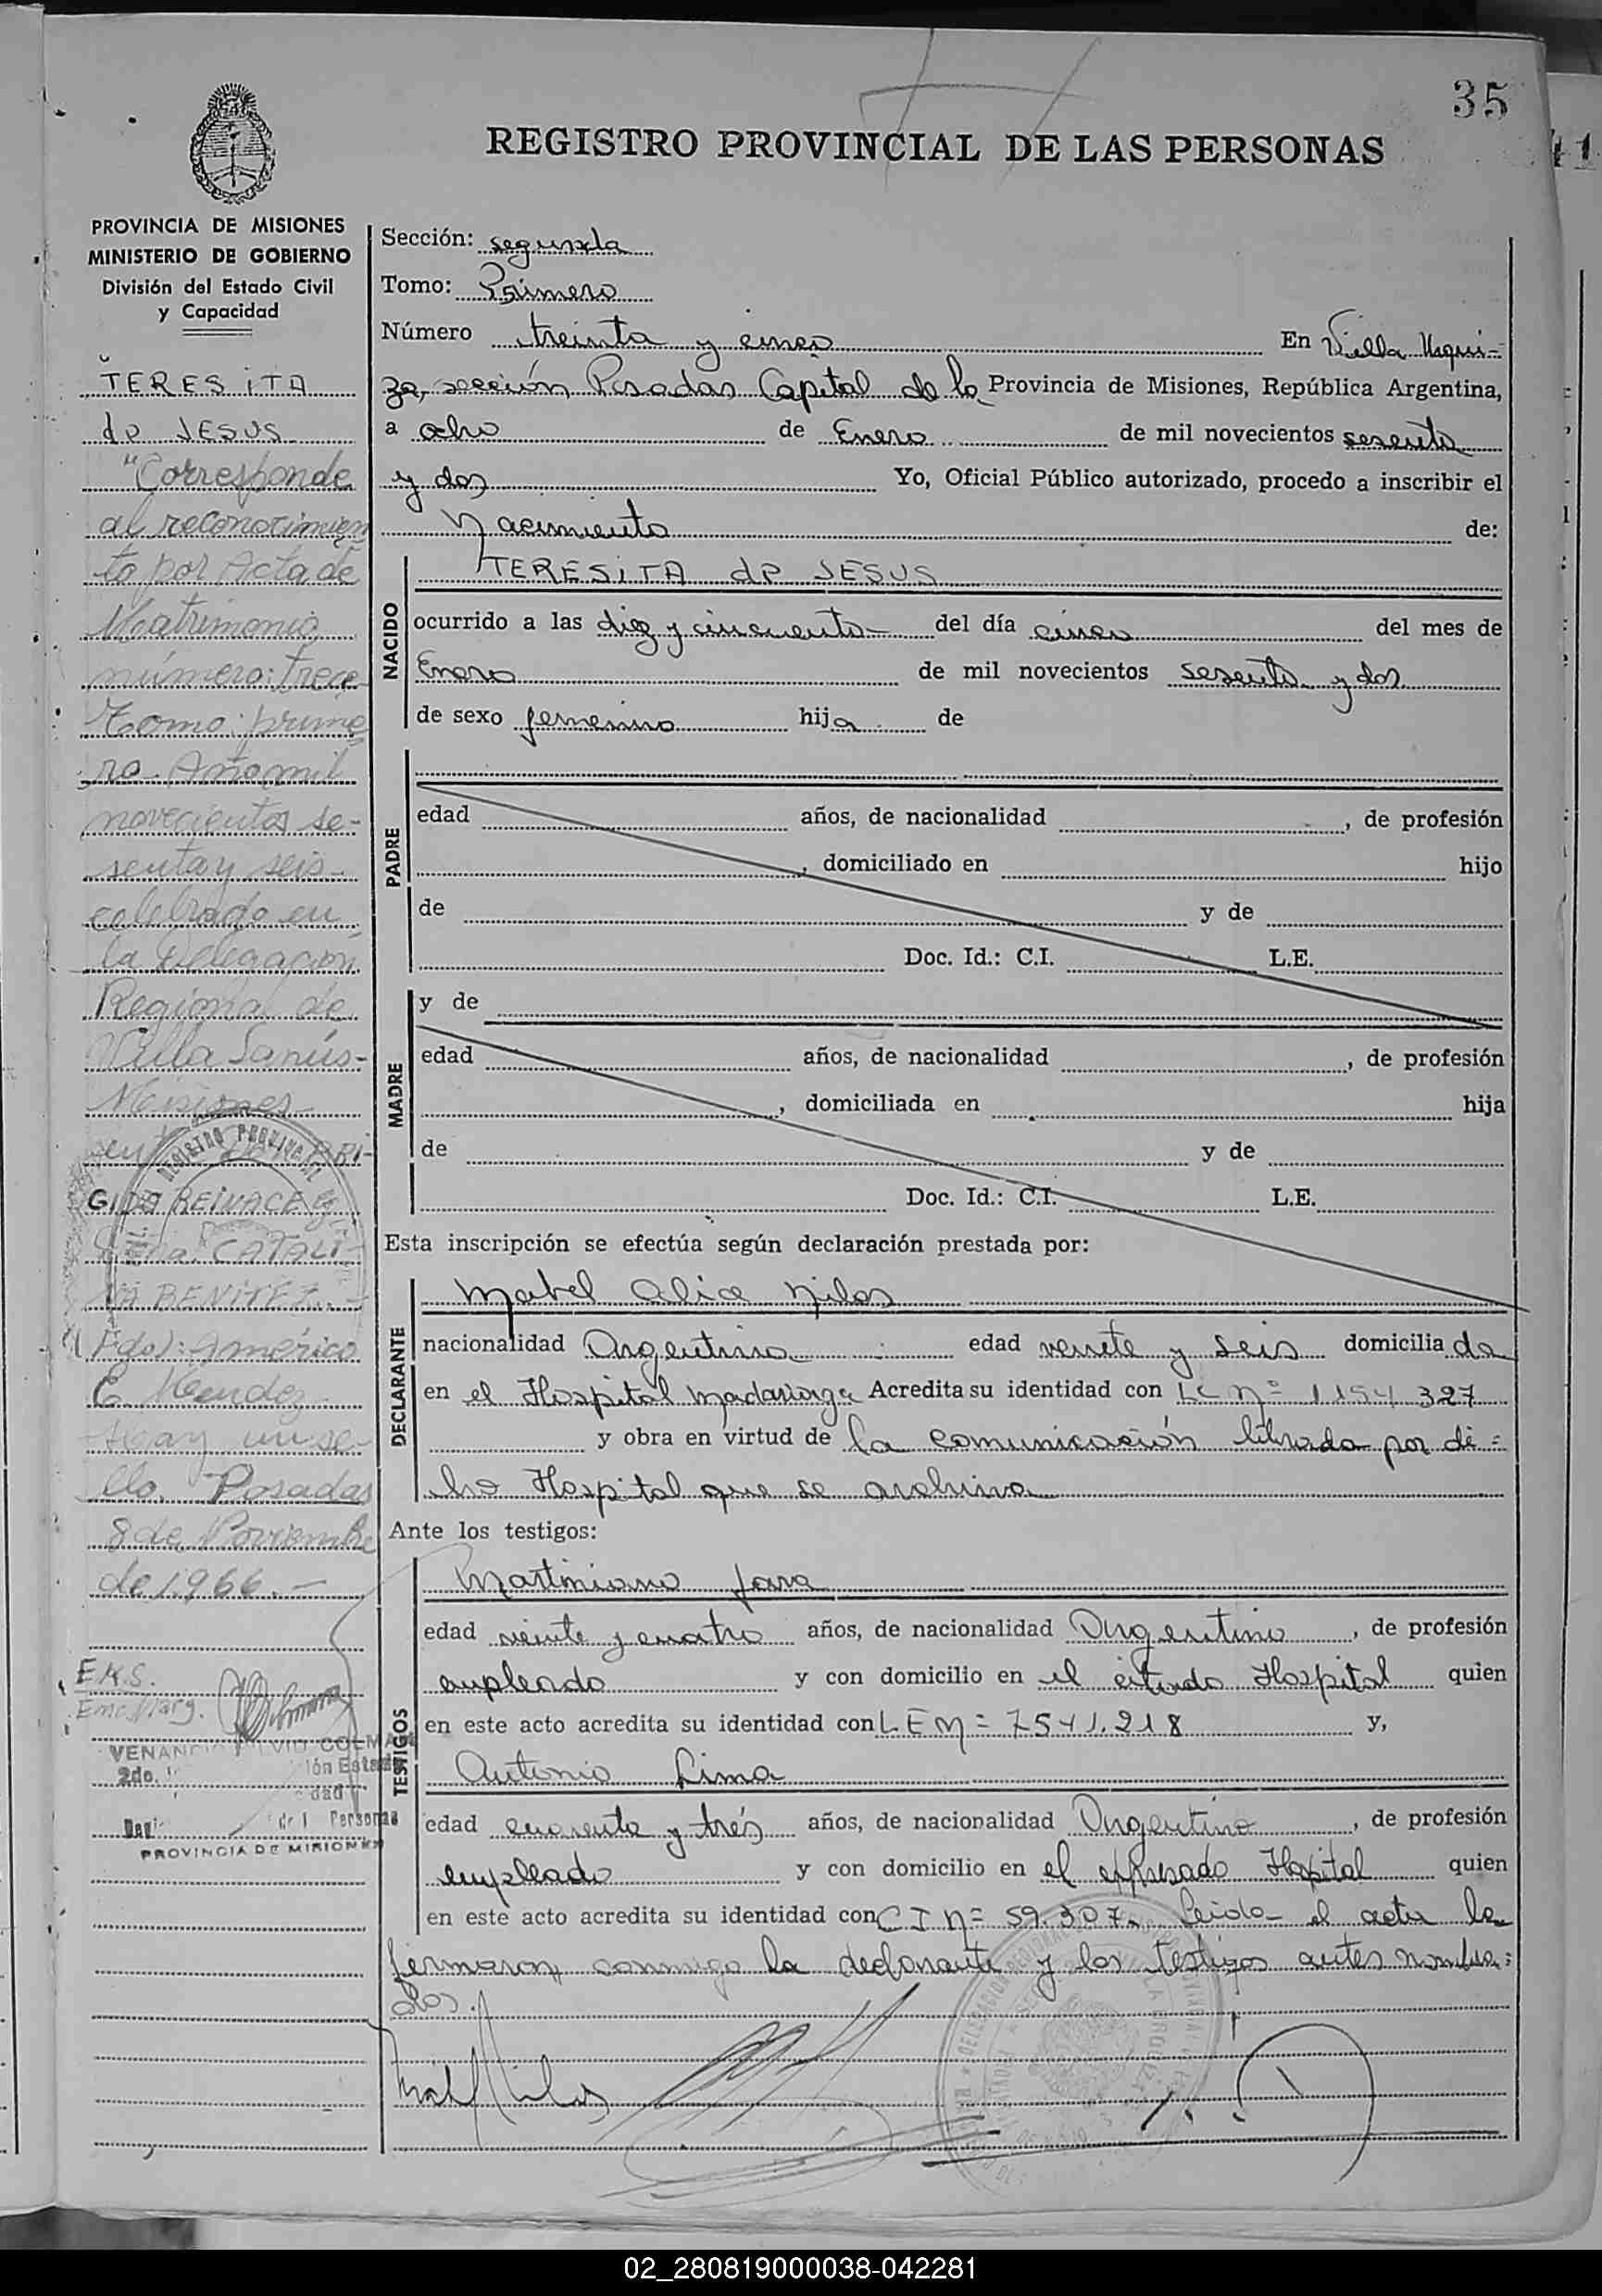 35
41
REGISTRO PROVINCIAL DE LAS PERSONAS
PROVINCIA DE MISIONES
MINISTERIO DE GOBIERNO
División del Estado Civil
y Capacidad
TERESITA
de JESUS
"Corresponde
al reconocimien
to por Acta de
Matrimonio
número: trece
Tomo: prime
ro. Año mil
novecientos se-
senta y seis
celebrado en
la Delegación
Regional de
Villa Lanús-
Misiones
entre
CATALI-
NA BENITEZ.-
(Fdo): Américo
E. Mendez
Hay un se-
llo. Posadas
8 de Noviembre
de 1.966.-
E.K.S.
Enc. Marg.
2do.
PROVINCIA DE MISIONES
Sección: segunda
Tomo: Primero
Número treinta y cinco En Villa Urqui=
za, sección Posadas Capital de la Provincia de Misiones, República Argentina,
a ocho de Enero de mil novecientos sesenta
y dos Yo, Oficial Público autorizado, procedo a inscribir el
Nacimiento de:
NACIDO
TERESITA de JESUS
ocurrido a las diez y cincuenta del día cinco del mes de
Enero de mil novecientos sesenta y dos
de sexo femenino hija de
PADRE
edad años, de nacionalidad , de profesión
, domiciliado en hijo
de y de
Doc. Id.: C.I. L.E.
MADRE
y de
edad años, de nacionalidad , de profesión
, domiciliada en hija
de y de
Doc. Id.: C.I. L.E.
Esta inscripción se efectúa según declaración prestada por:
DECLARANTE
Mabel Alice Milos
nacionalidad Argentina edad veinte y seis domiciliada
en el Hospital Madariaga Acredita su identidad con LC Nº 1154327
y obra en virtud de la comunicación librada por di=
cho Hospital que se archiva
Ante los testigos:
TESTIGOS
Martiniano Jara
edad veinte y cuatro años, de nacionalidad Argentino , de profesión
empleado y con domicilio en el citado Hospital quien
en este acto acredita su identidad con LE Nº 7541.218 y,
Antonio Lima
edad cuarenta y trés años, de nacionalidad Argentino , de profesión
empleado y con domicilio en el expresado Hospital quien
en este acto acredita su identidad con C I Nº 59.307. Leida el acta la
firmaron conmigo la declarante y los testigos antes nombra=
dos.
02_280819000038-042281